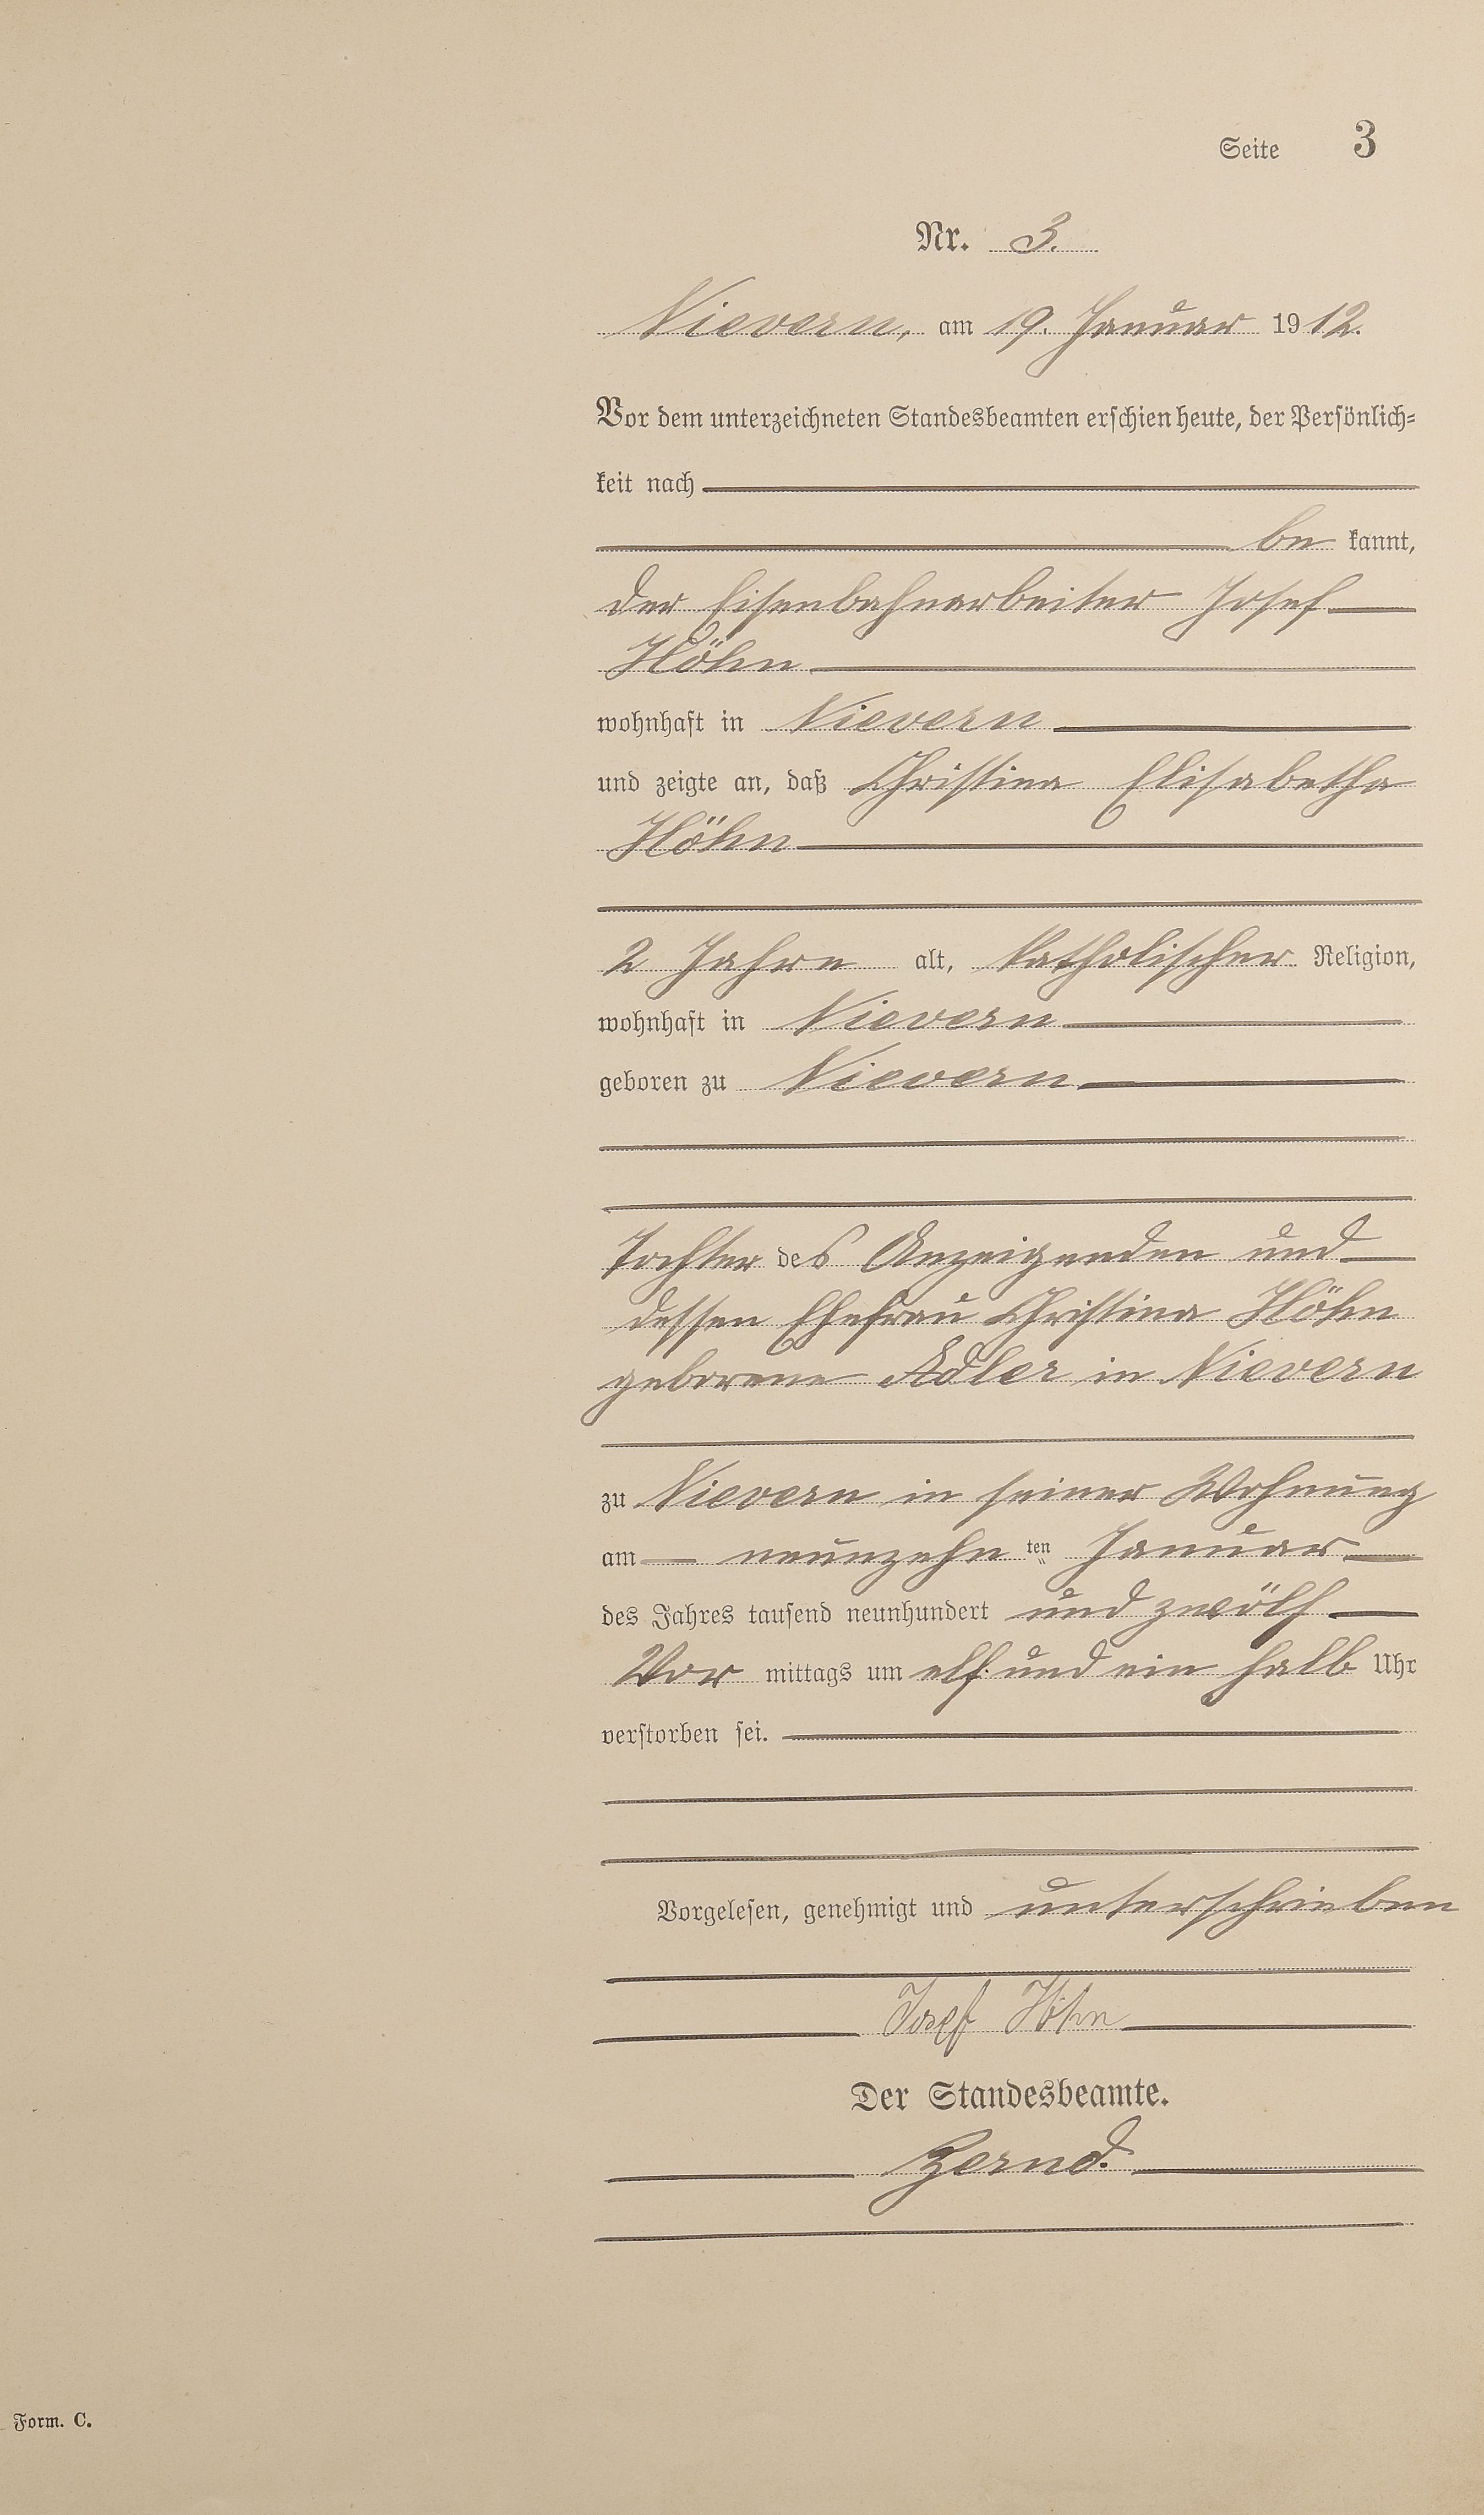 Seite 3
Nr. 3.
Nievern, am 19. Januar 1912.
Vor dem unterzeichneten Standesbeamten erschien heute, der Persönlich-
keit nach
be kannt,
der Eisenbahnarbeiter Josef
Höhn
wohnhaft in Nievern
und zeigte an, daß Christina Elisabetha
Höhn
2 Jahre alt, katholischer Religion,
wohnhaft in Nievern
geboren zu Nievern
Tochter des Anzeigenden und
dessen Ehefrau Christina Höhn
geborene Adler in Nievern
zu Nievern in seiner Wohnung
am neunzehn ten Januar
des Jahres tausend neunhundert und zwölf
Vor mittags um elf und ein halb Uhr
verstorben sei.
Vorgelesen, genehmigt und unterschrieben
Josef Höhn
Der Standesbeamte.
Form. C.